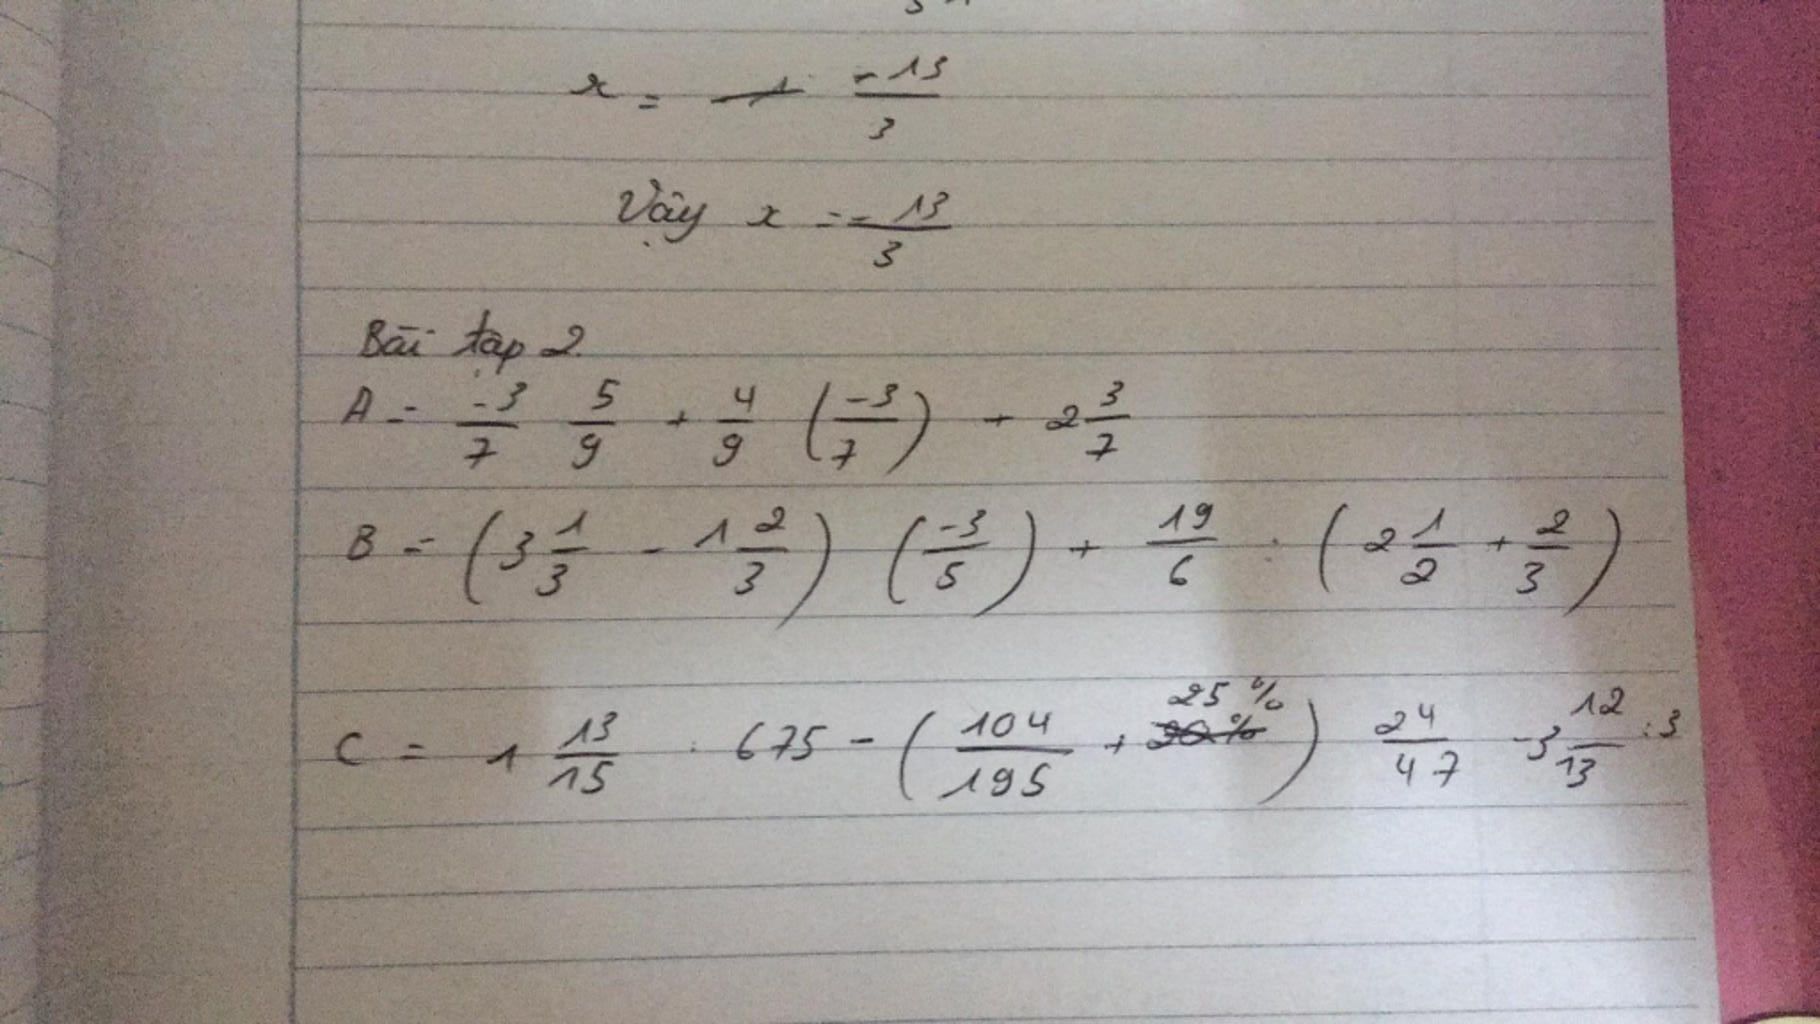 x = -13/3
Vậy x = -13/3
Bài tập 2.
A = -3/7 5/9 + 4/9 (-3/7) + 2 3/7
B = (3 1/3 - 1 2/3) (-3/5) + 19/6 : (2 1/2 + 2/3)
C = 1 13/15 . 675 - (104/195 + 25%) 24/47 - 3 12/13 : 3